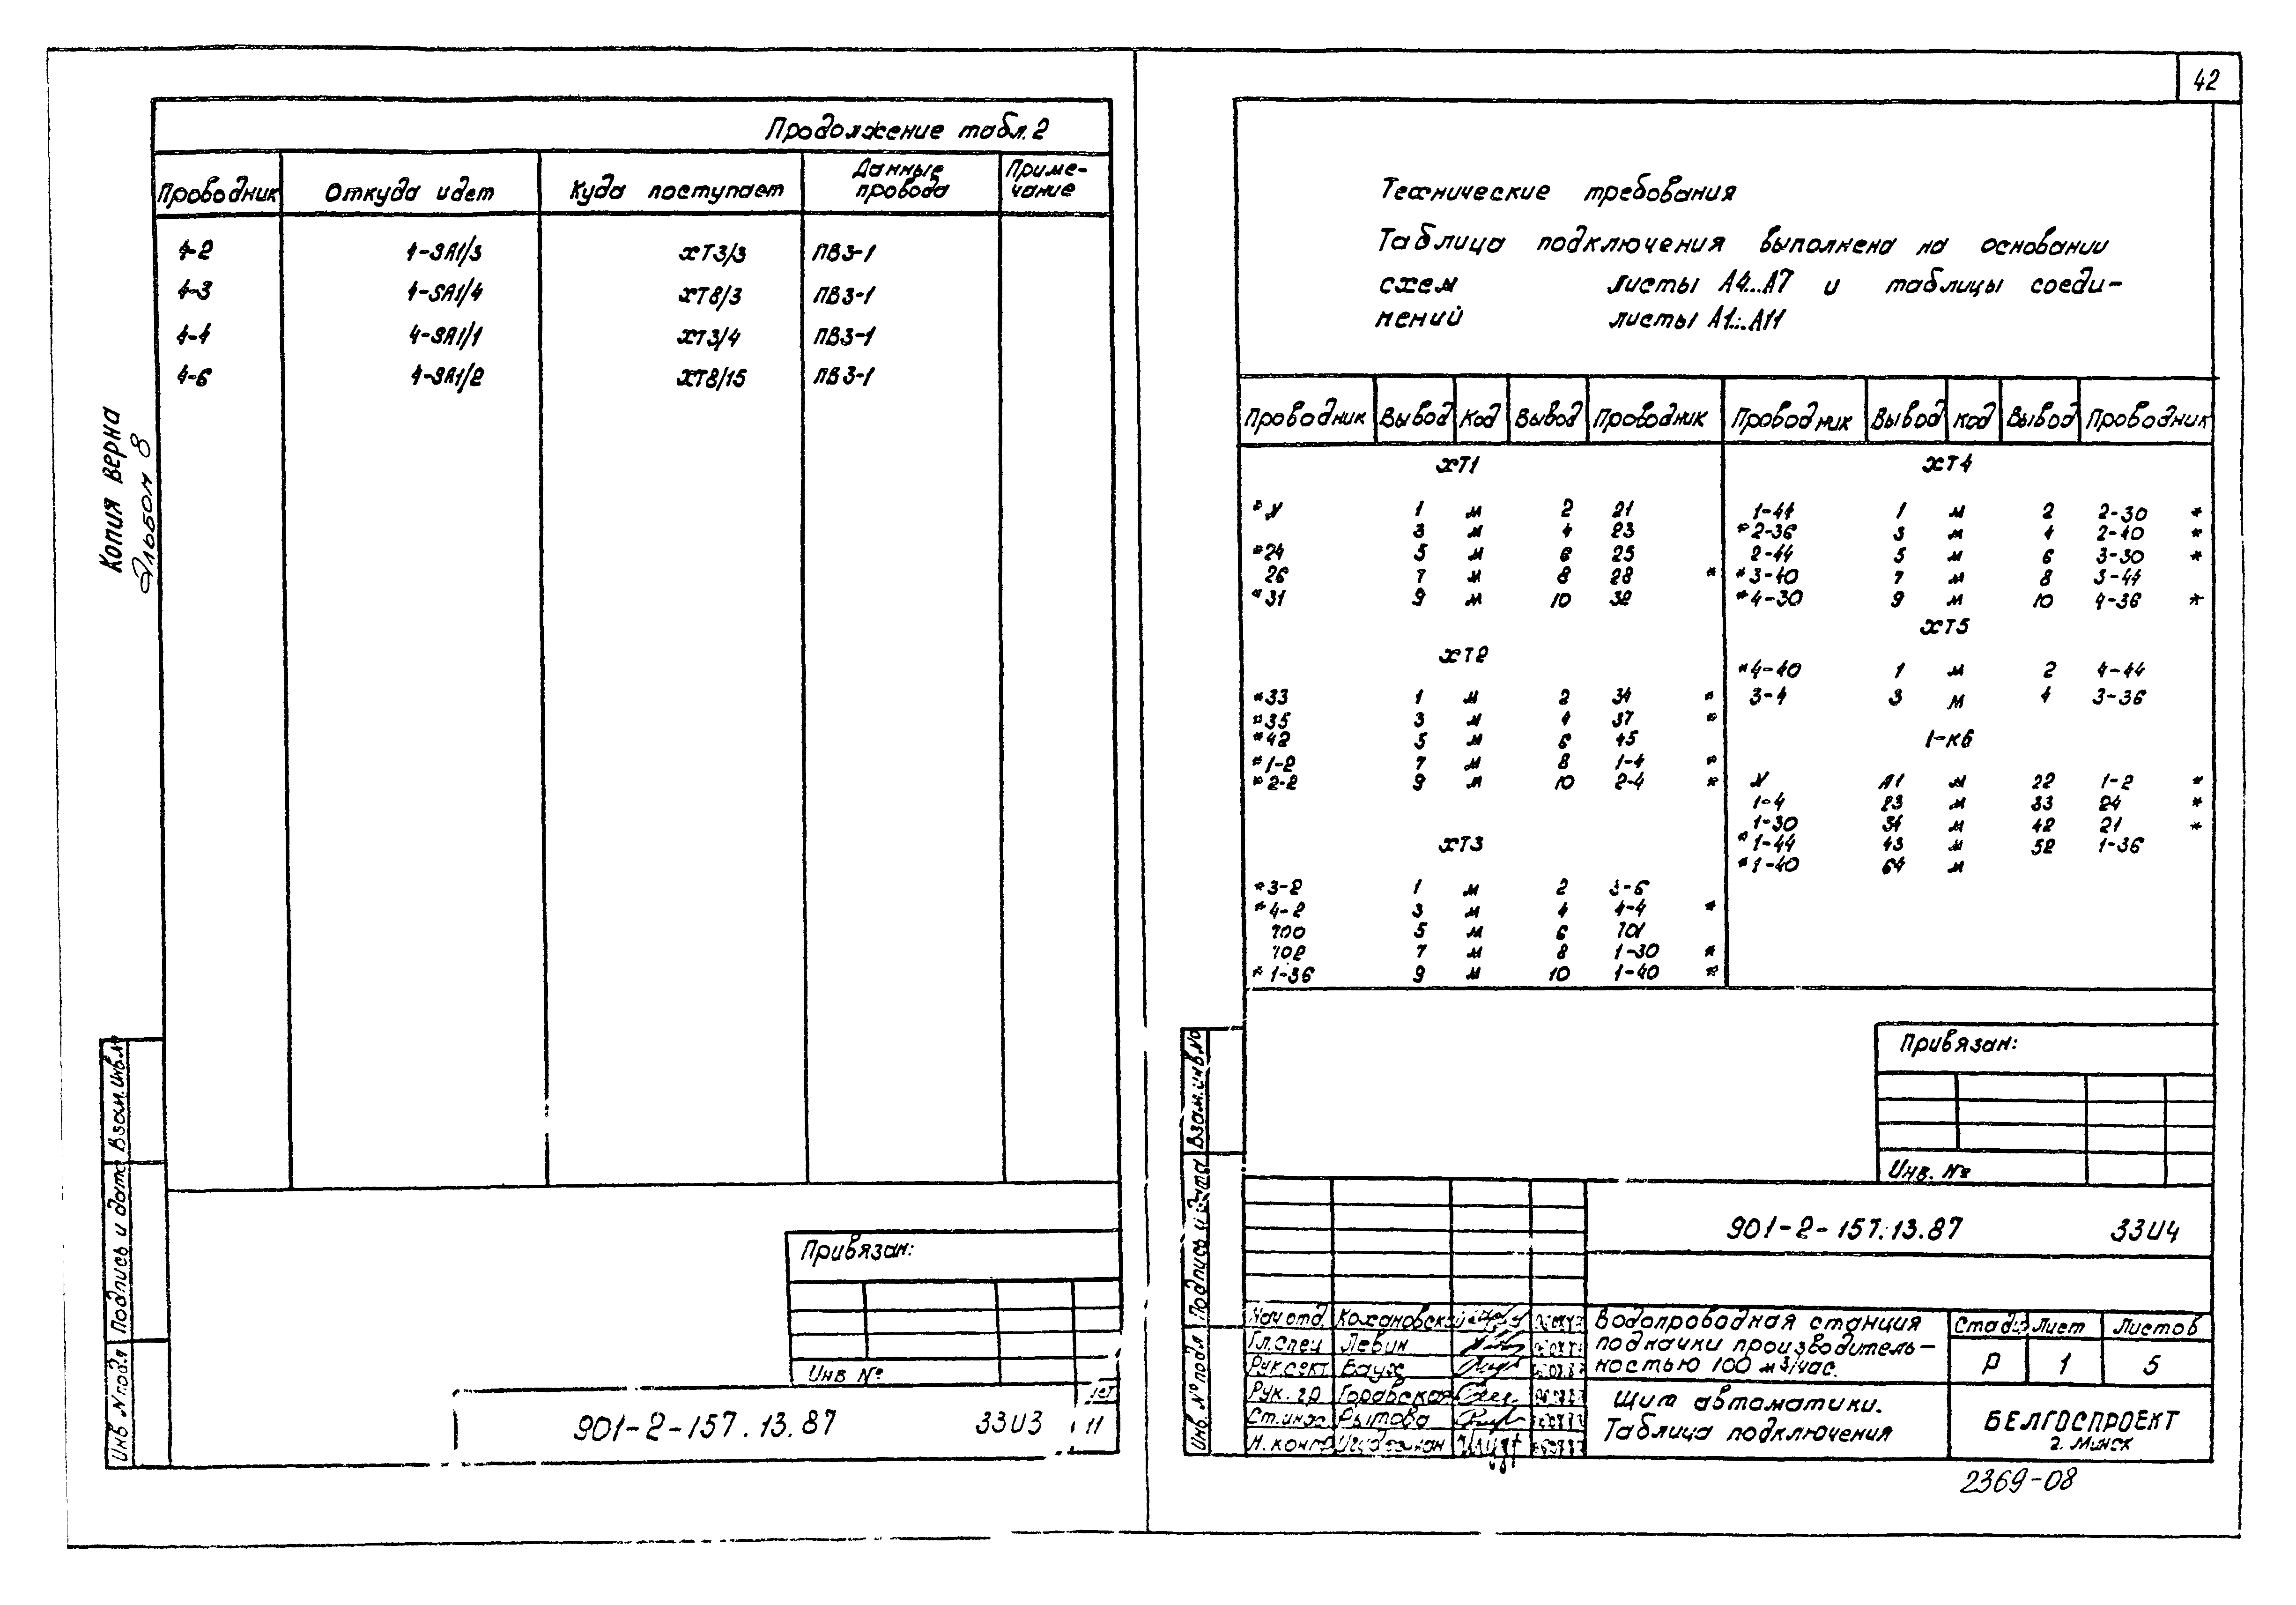 42
Продолжение табл. 2
Проводник Откуда идет Куда поступает Данные провода Приме-чание
4-2 4-SA1/3 ХТ3/3 ПВ3-1
4-3 4-SA1/4 ХТ8/3 ПВ3-1
4-4 4-SA1/1 ХТ3/4 ПВ3-1
4-6 4-SA1/2 ХТ8/15 ПВ3-1
Копия верна
Альбом 8
Взам. инв. №
Подпись и дата
Инв. № подл
Привязан:
Инв №
901-2-157.13.87 33И3 11
Технические требования
Таблица подключения выполнена на основании
схем листы А4...А7 и таблицы соеди-
нений листы А1...А11
Проводник Вывод Код Вывод Проводник Проводник Вывод Код Вывод Проводник
ХТ1
*N 1 м 2 21
3 м 4 23
*24 5 м 6 25
26 7 м 8 28 *
*31 9 м 10 32
ХТ2
*33 1 м 2 34 *
*35 3 м 4 37 *
*42 5 м 6 45
*1-2 7 м 8 1-4 *
*2-2 9 м 10 2-4 *
ХТ3
*3-2 1 м 2 3-6
*4-2 3 м 4 4-4 *
700 5 м 6 701
702 7 м 8 1-30 *
*1-36 9 м 10 1-40 *
ХТ4
1-44 1 м 2 2-30 *
*2-36 3 м 4 2-40 *
2-44 5 м 6 3-30 *
*3-40 7 м 8 3-44
*4-30 9 м 10 4-36 *
ХТ5
*4-40 1 м 2 4-44
3-4 3 м 4 3-36
1-К6
N А1 м 22 1-2 *
1-4 23 м 33 24 *
1-30 34 м 42 21 *
*1-44 43 м 52 1-36
*1-40 64 м
Привязан:
Инв. №
Взам. инв. №
Подпись и дата
Инв. № подл
901-2-157.13.87 33И4
Нач отд. Кохановский
Гл. спец Левин
Рук. сект. Баух
Рук. гр Горавская
Ст. инж. Рытова
Н. контр
Водопроводная станция
подкачки производитель-
ностью 100 м3/час.
Стадия Лист Листов
Р 1 5
Щит автоматики.
Таблица подключения
БЕЛГОСПРОЕКТ
г. Минск
2369-08